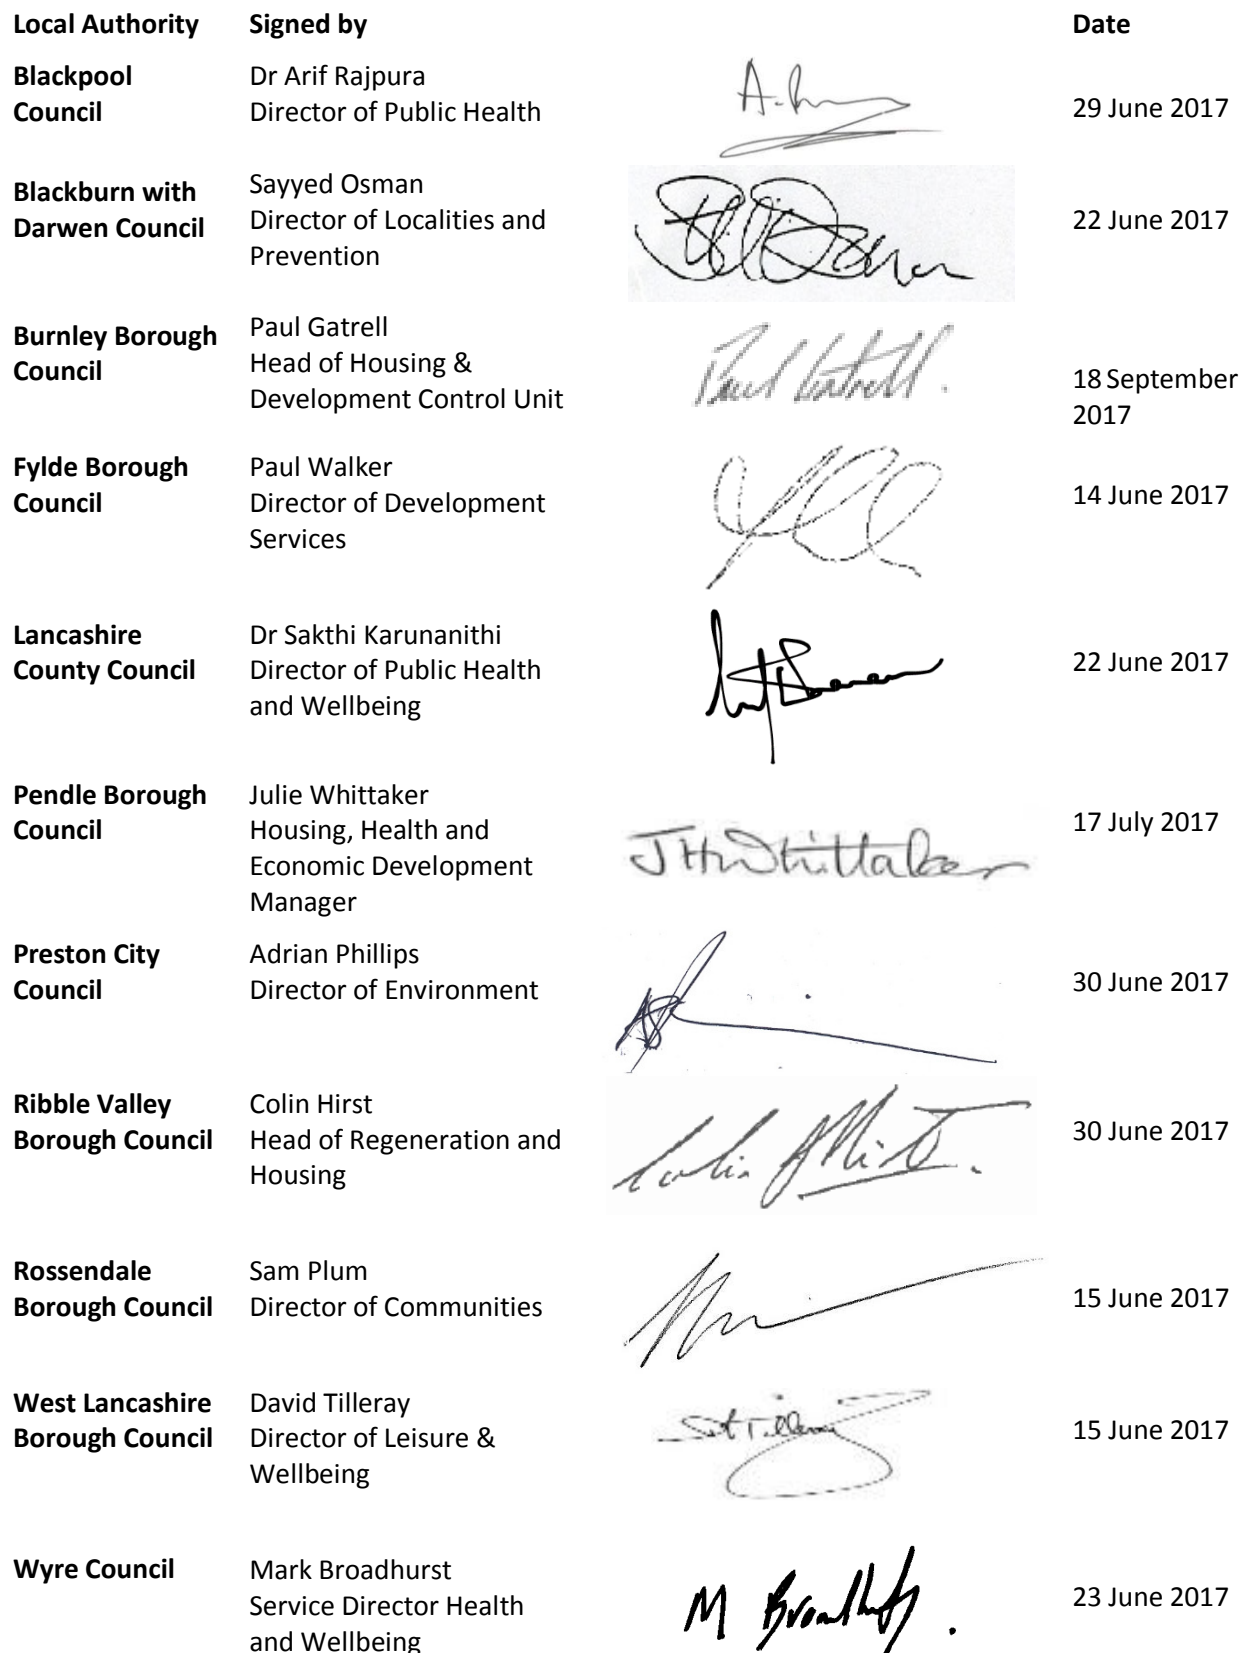 Local Authority Signed by Date
Blackpool Council
Dr Arif Rajpura
Director of Public Health
29 June 2017
Blackburn with
Darwen Council
Sayyed Osman
Director of Localities and
Prevention
22 June 2017
Burnley Borough
Council
Paul Gatrell
Head of Housing &
Development Control Unit
Paul Gatrell.
18 September
2017
Fylde Borough
Council
Paul Walker
Director of Development
Services
14 June 2017
Lancashire
County Council
Dr Sakthi Karunanithi
Director of Public Health
and Wellbeing
22 June 2017
Pendle Borough
Council
Julie Whittaker
Housing, Health and
Economic Development
Manager
JHWhittaker
17 July 2017
Preston City
Council
Adrian Phillips
Director of Environment
30 June 2017
Ribble Valley
Borough Council
Colin Hirst
Head of Regeneration and
Housing
Colin Hirst.
30 June 2017
Rossendale
Borough Council
Sam Plum
Director of Communities
15 June 2017
West Lancashire
Borough Council
David Tilleray
Director of Leisure &
Wellbeing
15 June 2017
Wyre Council
Mark Broadhurst
Service Director Health
and Wellbeing
M Broadhurst.
23 June 2017